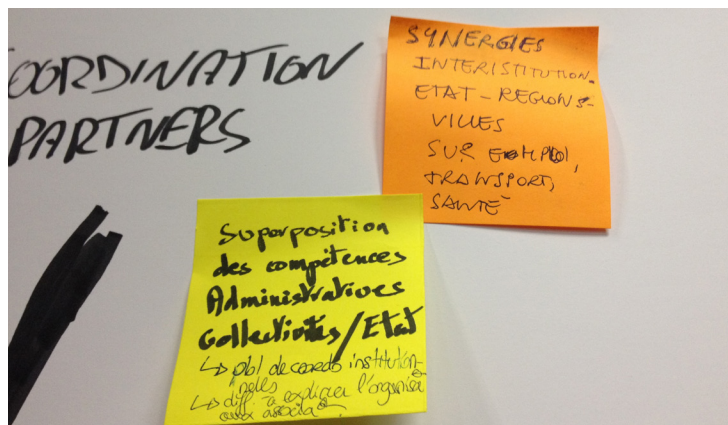 COORDINATION
PARTNERS
SYNERGIES
INTERISTITUTION.
ETAT - REGIONS -
VILLES
SUR EMPLOI,
TRANSPORT,
SANTÉ
Superposition
des compétences
Administratives
Collectivités/Etat
↳ pbl de coordo institution-
nelles
↳ diff. à expliquer l'organisa°
aux associa°